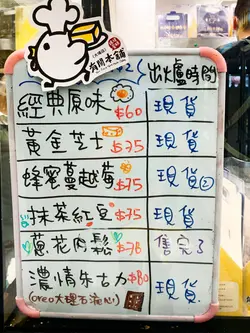 有間本舖
出爐時間
經典原味 $60 現貨
黃金芝士 $75 現貨
蜂蜜蔓越莓 $75 現貨②
抹茶紅豆 $75 現貨
蔥花肉鬆 $75 售完了
濃情朱古力 $80 現貨
(oreo大理石流心)